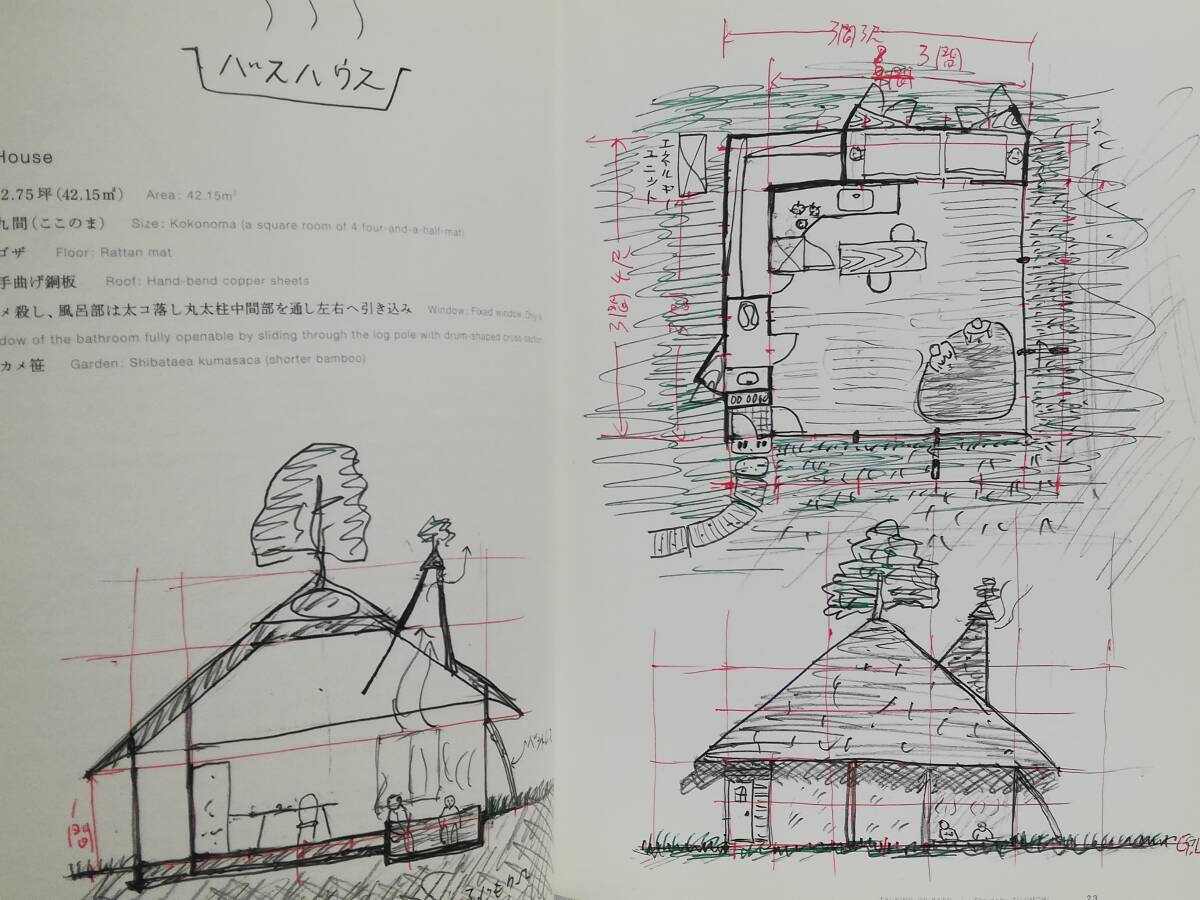 バスハウス
House
2.75坪(42.15㎡) Area: 42.15m²
九間(ここのま) Size: Kokonoma (a square room of 4 four-and-a-half-mat)
ゴザ Floor: Rattan mat
手曲げ銅板 Roof: Hand-bend copper sheets
メ殺し、風呂部は太コ落し丸太柱中間部を通し左右へ引き込み Window: Fixed window. Only
dow of the bathroom fully openable by sliding through the log pole with drum-shaped cross-section
カメ笹 Garden: Shibataea kumasaca (shorter bamboo)
1間
3間3尺
3間
エネルギー
ユニット
3間4尺
3間
G.L
23